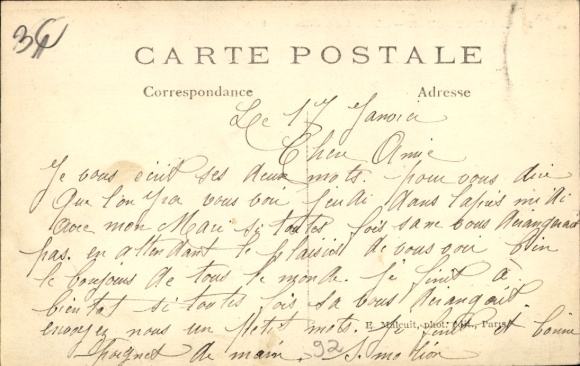 3f
CARTE POSTALE
Correspondance Adresse
Le 17 Janvier
Cher Amie
Je vous ecrit ses deux mots. pour vous dire
que l'on ira vous voir jeudi dans lapres midi
avec mon Mari si toutes fois sa ne vous derangerait
pas. en attendant le plaisir de vous voir bien
le bonjours de tous le monde. je finit à
bientot si toutes fois sa vous derangait.
envoyez nous un petit mots. Je finit et bonne
E. Malcuit, phot. édit., Paris
Poignet de main.
92